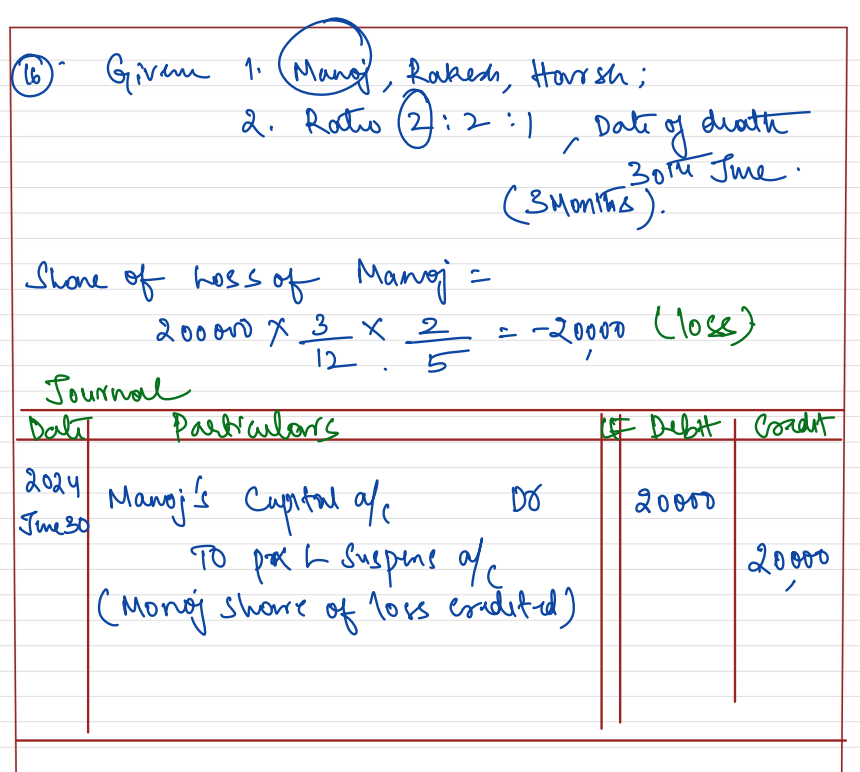 (16) Given 1. Manoj, Rakesh, Harsh;
2. Ratio 2:2:1, Date of death
30th June.
(3 Months).
Share of Loss of Manoj =
200000 × 3/12 × 2/5 = -20,000 (loss)
Journal
Date Particulars LF Debit Credit
2024 Manoj's Capital a/c Dr 20000
June 30
To P & L Suspens a/c 20,000
(Monoj share of loss credited)